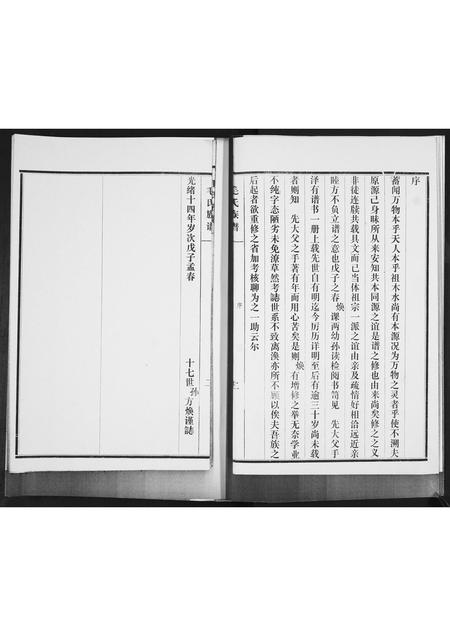 序
蓄闻万物本乎天人本乎祖木水尚有本源况为万物之灵者乎使不溯夫
原源己身昧所从来安知共本同源之谊是谱之修也由来尚矣修之之义
非徒连牍共载具文而已当体祖宗一派之谊由亲及疏情好相洽远近亲
睦方不负立谱之意也戊子之春焕课两幼孙读检阅书笥见 先大父手
泽有谱书一册上载先世自有明迄今历历详明至后有逾三十岁尚未载
者则知 先大父之手著有年而用心苦矣是则焕有增修之举无奈学业
不纯字态陋劣未免潦草然考誌世系不致离涣亦所不顾以俟夫吾族之
后起者欲重修之省加考核聊为之一助云尔
毛氏族谱
序
光绪十四年岁次戊子孟春
十七世孙方焕谨誌